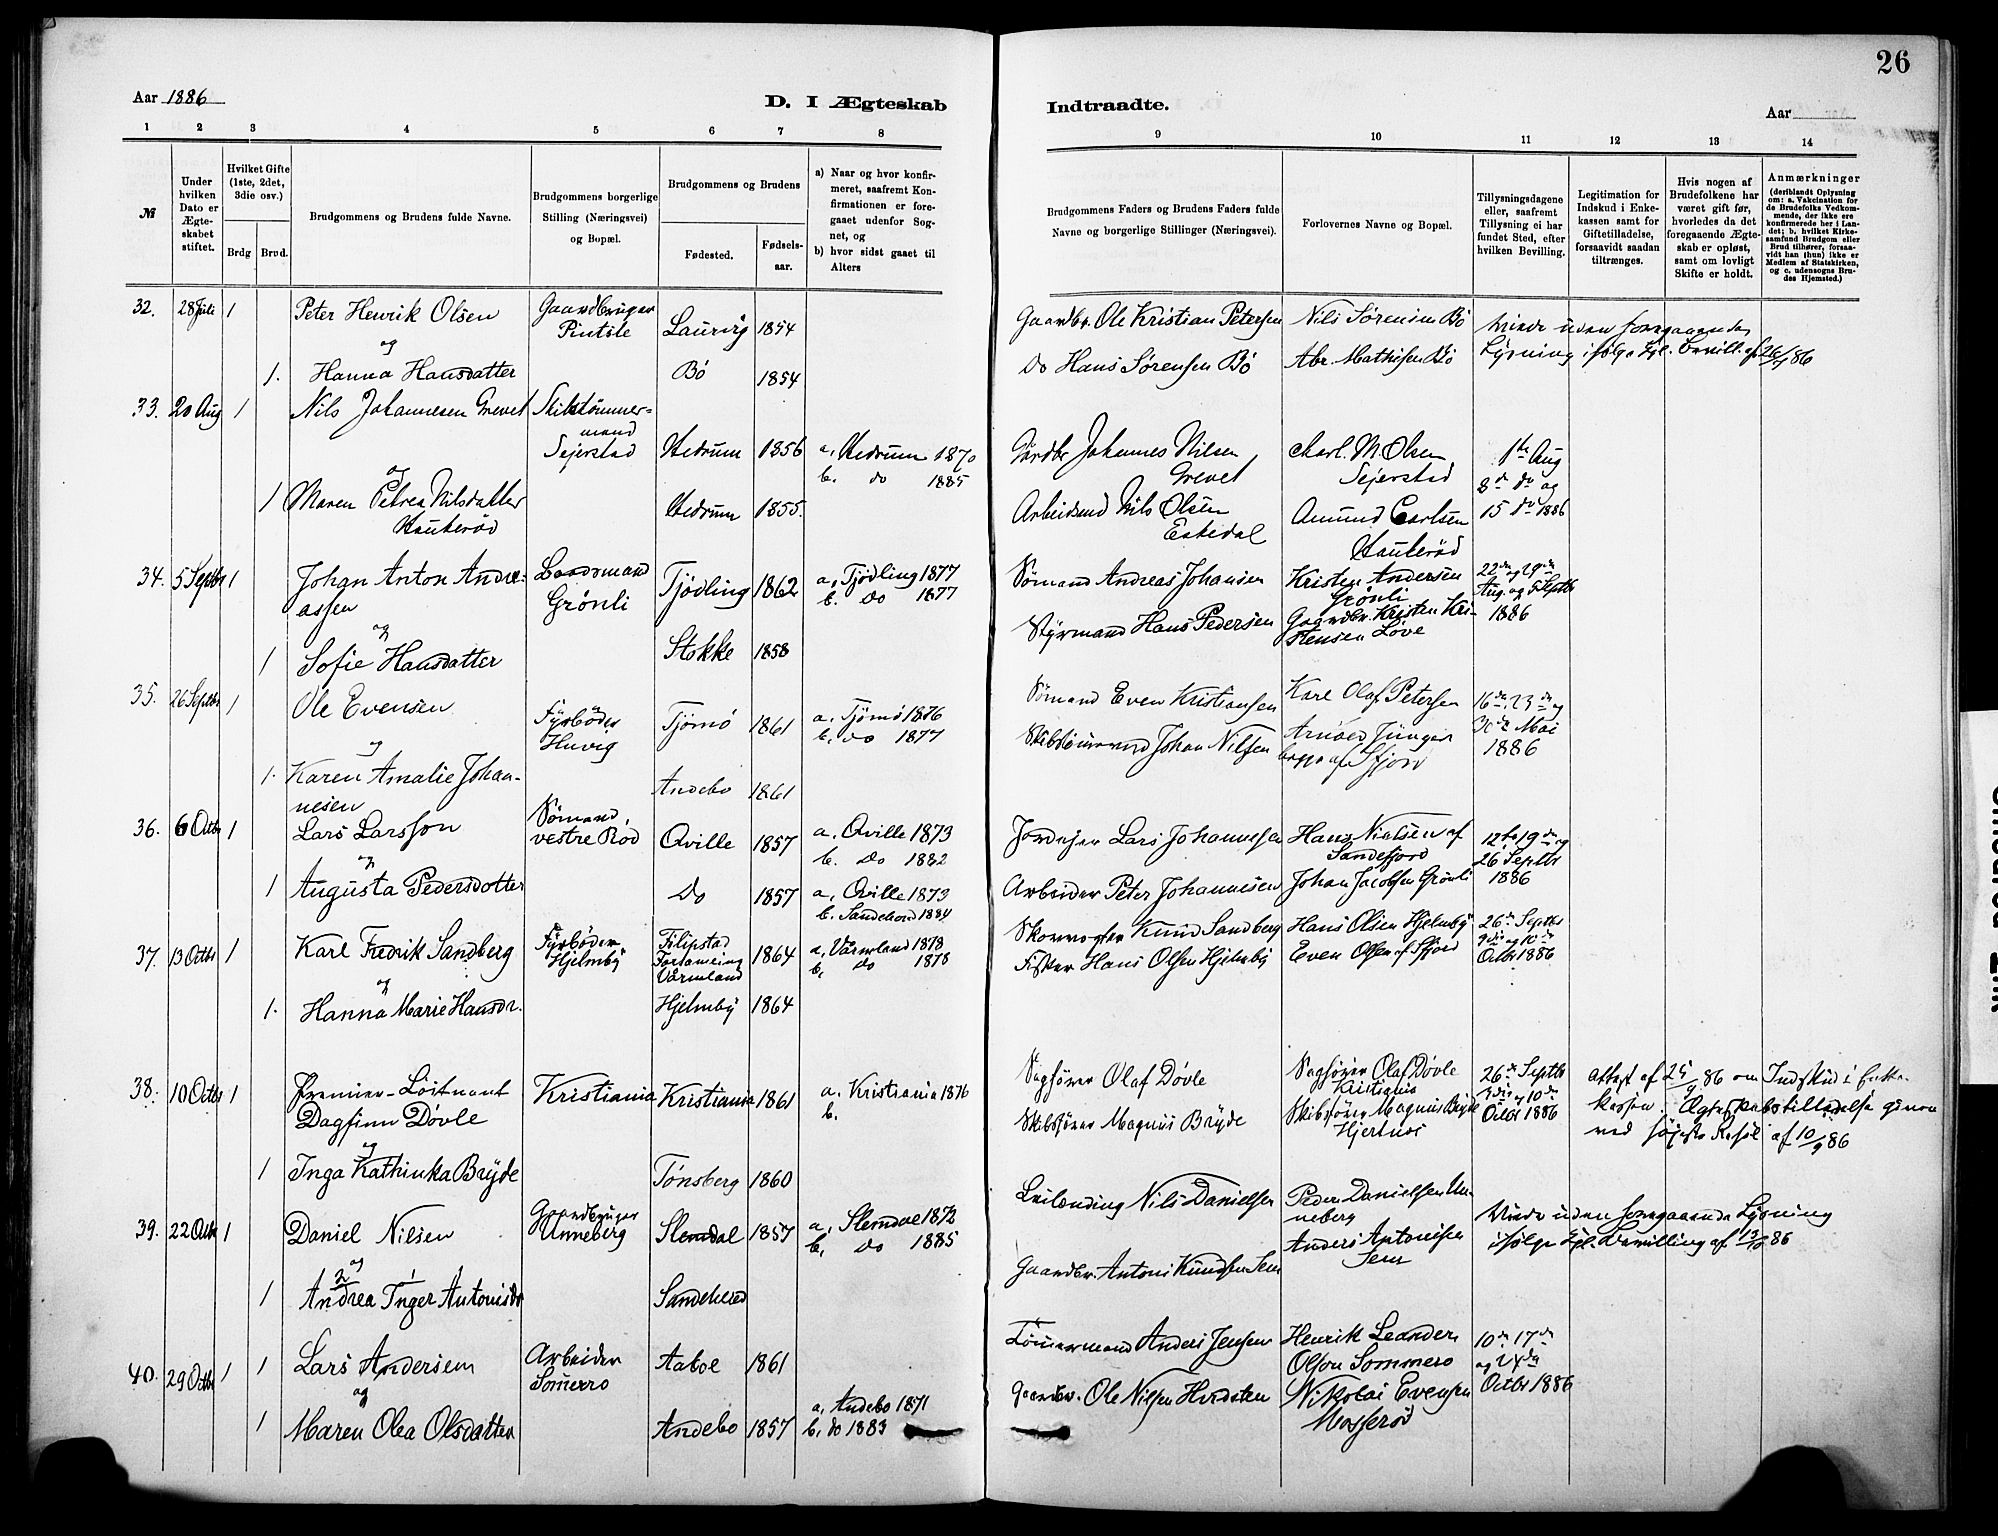 26
Aar 1886
D. I Ægteskab
Indtraadte.
Aar
1 2 3 4 5 6 7 8
9 10 11 12 13 14
№
Under hvilken Dato er Ægteskabet stiftet.
Hvilket Gifte (1ste, 2det, 3die osv.)
Brdg. Brud.
Brudgommens og Brudens fulde Navne.
Brudgommens borgerlige Stilling (Næringsvei) og Bopæl.
Brudgommens og Brudens
Fødested.
Fødselsaar.
a) Naar og hvor konfirmeret, saafremt Konfirmationen er foregaaet udenfor Sognet, og
b) hvor sidst gaaet til Alters
Brudgommens Faders og Brudens Faders fulde Navne og borgerlige Stillinger (Næringsvei).
Forlovernes Navne og Bopæl.
Tillysningsdagene eller, saafremt Tillysning ei har fundet Sted, efter hvilken Bevilling.
Legitimation for Indskud i Enkekassen samt for Giftetilladelse, forsaavidt saadan tiltrænges.
Hvis nogen af Brudefolkene har været gift før, hvorledes da det foregaaende Ægteskab er opløst, samt om lovligt Skifte er holdt.
Anmærkninger
(deriblandt Oplysning om: a. Vakcination for de Brudefolks Vedkommende, der ikke ere konfirmerede her i Landet; b. hvilket Kirkesamfund Brudgom eller Brud tilhører, forsaavidt han (hun) ikke er Medlem af Statskirken, og c. udensogns Brudes Hjemsted.)
32. 28 Juli 1 Peter Henrik Olsen Gaardbruger Laurvig 1854
Gaardbr. Ole Kristian Petersen Nils Sørensen Bö Viede uden foregaaende
og
1. Hanna Hansdatter Bö 1854
Do Hans Sørensen Bö Abr. Mathisen Bö Lysning ifølge Kgl. Bevill. af 26/7 86
33. 20 Aug 1 Nils Johannesen Grevet Skibstømmermand
Sejerstad Hedrum 1856 a, Hedrum 1870
b. do 1885
Gårdbr Johannes Nilsen Grevet Carl. M. Olsen Sejerstad 1ste Aug
8de do og
15 do 1886
og
1 Maren Petrea Nilsdatter Haukerød Hedrum 1855.
Arbeidsmd Nils Olsen Amund Carlsen Haukerød
34. 5 Septbr 1 Johan Anton Andreassen Baadsmand
Grönli Tjödling 1862 a, Tjödling 1877
b. Do 1877
Sömand Andreas Johansen Kristen Andersen Grönli 22de og 29de
Aug. og 5 Septbr
1886
og
1 Sofie Hansdatter Stokke 1858
Styrmand Hans Pedersen Gaardbr. Kristen Kristensen Løve
35. 26 Septbr 1 Ole Evensen Fyrböder
Huvig Tjömö 1861 a. Tjömö 1876
b. do 1877
Sömand Even Kristiansen Karl Olaf Petersen 16de 23de og
30de Mai
1886
og
1. Karen Amalie Johannesen Andebo 1861
Skibstömmermd Johan Nilsen
36. 6 Octbr 1 Lars Larsson Sömand,
vestre Röd Qville 1857 a. Qville 1873
b. Do 1882
Jordejer Lars Johannesen Hans Nielsen af Sandefjord 12te 19de og
26 Septbr
1886
og
1 Augusta Pedersdotter Do 1857 a, Qville 1873
b. Sandeherd 1884
Arbeider Peter Johannesen Johan Jacobsen Grönli
37. 13 Octbr 1 Karl Fredrik Sandberg Fyrböder
Hjelmby Filipstad
Forsamling
Värmland 1864 a, Värmland 1878
b. do 1878
Sandberg Hans Olsen Hjelmby 26de Septbr
3die og 10de
Octbr 1886
og
1. Hanna Marie Hansdr. Hjelmby 1864
Fisker Hans Olsen Hjelmby Even Olsen af Sfjord
38. 10 Octbr 1 Premier-Löitnant
Dagfinn Dövle Kristiania Kristiania 1861 a. Kristiania 1876
b.
Sagförer Olaf Dövle Sagförer Olaf Dövle
Kristiania 26de Septbr
3die og 10de
Octbr 1886
attest af 25/9 86 om Indskud i Enkekassen. Ægteskabstilladelse given
ved højeste Resol. af 10/9 86
og
1 Inga Kathinka Bryde Tönsberg 1860
Skibsförer Magnus Bryde Skibsförer Magnus Bryde
Hjertnæs
39. 22 Octbr 1 Daniel Nilsen Gaardbruger
Unneberg Slemdal 1857 a, Slemdal 1872
b, Do 1885
Leilænding Nils Danielsen Peder Danielsen Unneberg Viede uden foregaaende Lysning
ifølge Kgl. Bevilling af 13/10 86
og
2 1
1 Andrea Inger Antonisdr Sandeherred
Gaardbr. Antoni Knudsen Sem Anders Antonisen Sem
40. 29 Octbr 1 1 Lars Andersen Arbeider
Somerro Aaboe 1861
Tömmermand Anders Jensen Henrik Leander
Olsen Sommero 10de 17de
og 24de
Octbr 1886
og
1 Maren Olea Olsdatter Andebo 1857 a, Andebo 1871
b, do 1883
Gaardbr. Ole Nilsen Hvidsten Nikolai Evensen
Mosserød